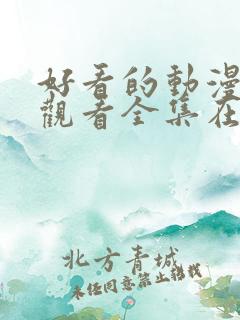 好看的動漫
觀看全集在
北方青城
未经同意禁止转载